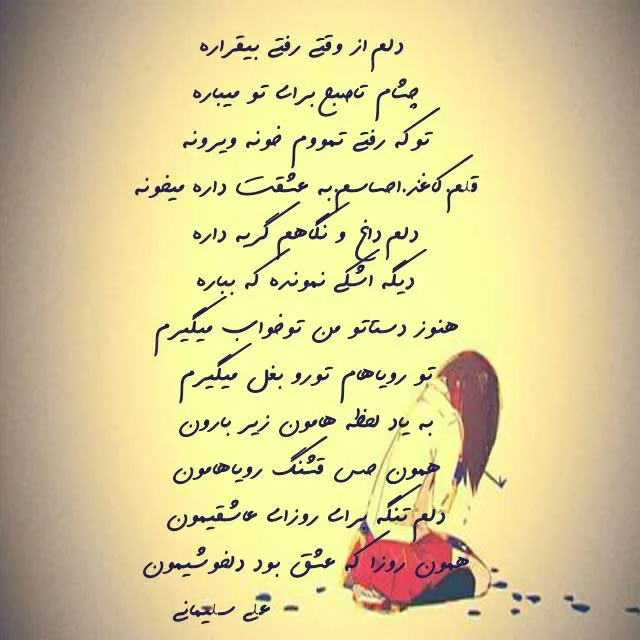 دلم از وقتی رفتی بیقراره
چشام تاصبح برای تو میباره
تو که رفتی تمووم خونه ویرونه
قلم.کاغذ.احساسم.به عشقت داره میخونه
دلم داغ و نگاهم گریه داره
دیگه اشکی نمونده که بباره
هنوز دستاتو من توخواب میگیرم
تو رویاهام تورو بغل میگیرم
به یاد لحظه هامون زیر بارون
همون حس قشنگ رویاهامون
دلم تنگه برای روزای عاشقیمون
همون روزا که عشق بود دلخوشیمون
علی سلیمانی